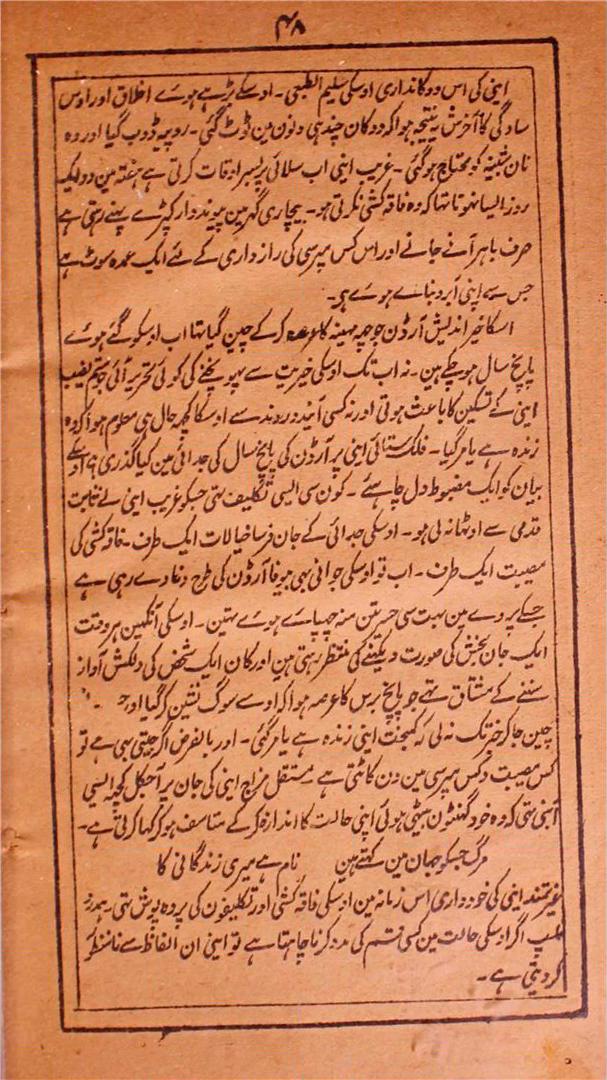 ۴۸
اینی کی اس دوکانداری اوسکی سلیم الطبعی ۔ اوسکے بڑہے ہوے اخلاق اور اوس
سادگی کا آخرش یہ نتیجہ ہوا کہ دوکان چند ہی دنون مین ٹوٹ گئی ۔ روپیہ ڈوب گیا اور وہ
نان شبینہ کو محتاج ہوگئی ۔ غریب اینی اب سلائی پر بسر اوقات کرتی ہے ہفتہ مین دو ایک
روز ایسا نہوتا تہا کہ وہ فاقہ کشی نکرتی ہو ۔ بیچاری گہر مین پیوند دار کپڑے پہنے رہتی ہے
صرف باہر آنے جانے اور اس کس مپرسی کی رازداری کے لئے ایک عمدہ سوٹ ہے
جس سے اپنی آبرو بناے ہوے ہی ۔
اسکا خیر اندیش آرڈن جو چہہ مہینہ کا وعدہ کرکے چین گیا تہا اب اوسکو گئے ہوے
پانچ سال ہوچکے ہین ۔ نہ اب تک اوسکی خیریت سے پہونچنے کی کوئی تحریر آئی جو بدنصیب
اینی کے تسکین کا باعث ہوتی اور نہ کسی آیند و روند سے اوسکا کچہہ حال ہی معلوم ہوا کہ وہ
زندہ ہے یا مر گیا ۔ فلک ستائی اینی پر آرڈن کی پانچ سال کی جدائی مین کیا گذری ہے اوسکے
بیان کو ایک مضبوط دل چاہئے ۔ کون سی ایسی تکلیف تہی جسکو غریب اینی نے ثابت
قدمی سے اوٹہا نہ لی ہو ۔ اوسکی جدائی کے جان فرسا خیالات ایک طرف ۔ فاقہ کشی کی
مصیبت ایک طرف ۔ اب تو اوسکی جوانی بہی بیوفا آرڈن کی طرح دغا دے رہی ہے
جسکے پردے مین بہت سی حسرتین منہ چہپاے ہوے تہین ۔ اوسکی آنکہین ہر وقت
ایک جان بخش کی صورت دیکہنے کی منتظر رہتی ہین اور کان ایک شخص کی دلکش آواز
سننے کے مشتاق تہے جو پانچ برس کا عرصہ ہوا کہ اوسے سوگ نشین کر گیا اور
چین جا کر خبر تک نہ لی کہ کمبخت اینی زندہ ہے یا مر گئی ۔ اور بالفرض اگر جیتی بہی ہے تو
کس مصیبت و کس مپرسی مین دن کاٹتی ہے ۔ مستقل مزاج اینی کی جان پر آجکل کچہہ ایسی
آبنی تہی کہ وہ خود گہنٹون بیٹہی ہوئی اپنی حالت کا اندازہ کرکے متاسف ہو کر کہا کرتی ہے ۔
مرگ جسکو جہان مین کہتے ہین      نام ہے میری زندگانی کا
غیرتمند اینی کی خودداری اس زمانہ مین اوسکی فاقہ کشی اور تکلیفون کی پردہ پوش تہی ۔ ہمدرد
فلپ اگر اوسکی حالت مین کسی قسم کی مدد کرنا چاہتا ہے تو اینی ان الفاظ سے نامنظور
کر دیتی ہے ۔